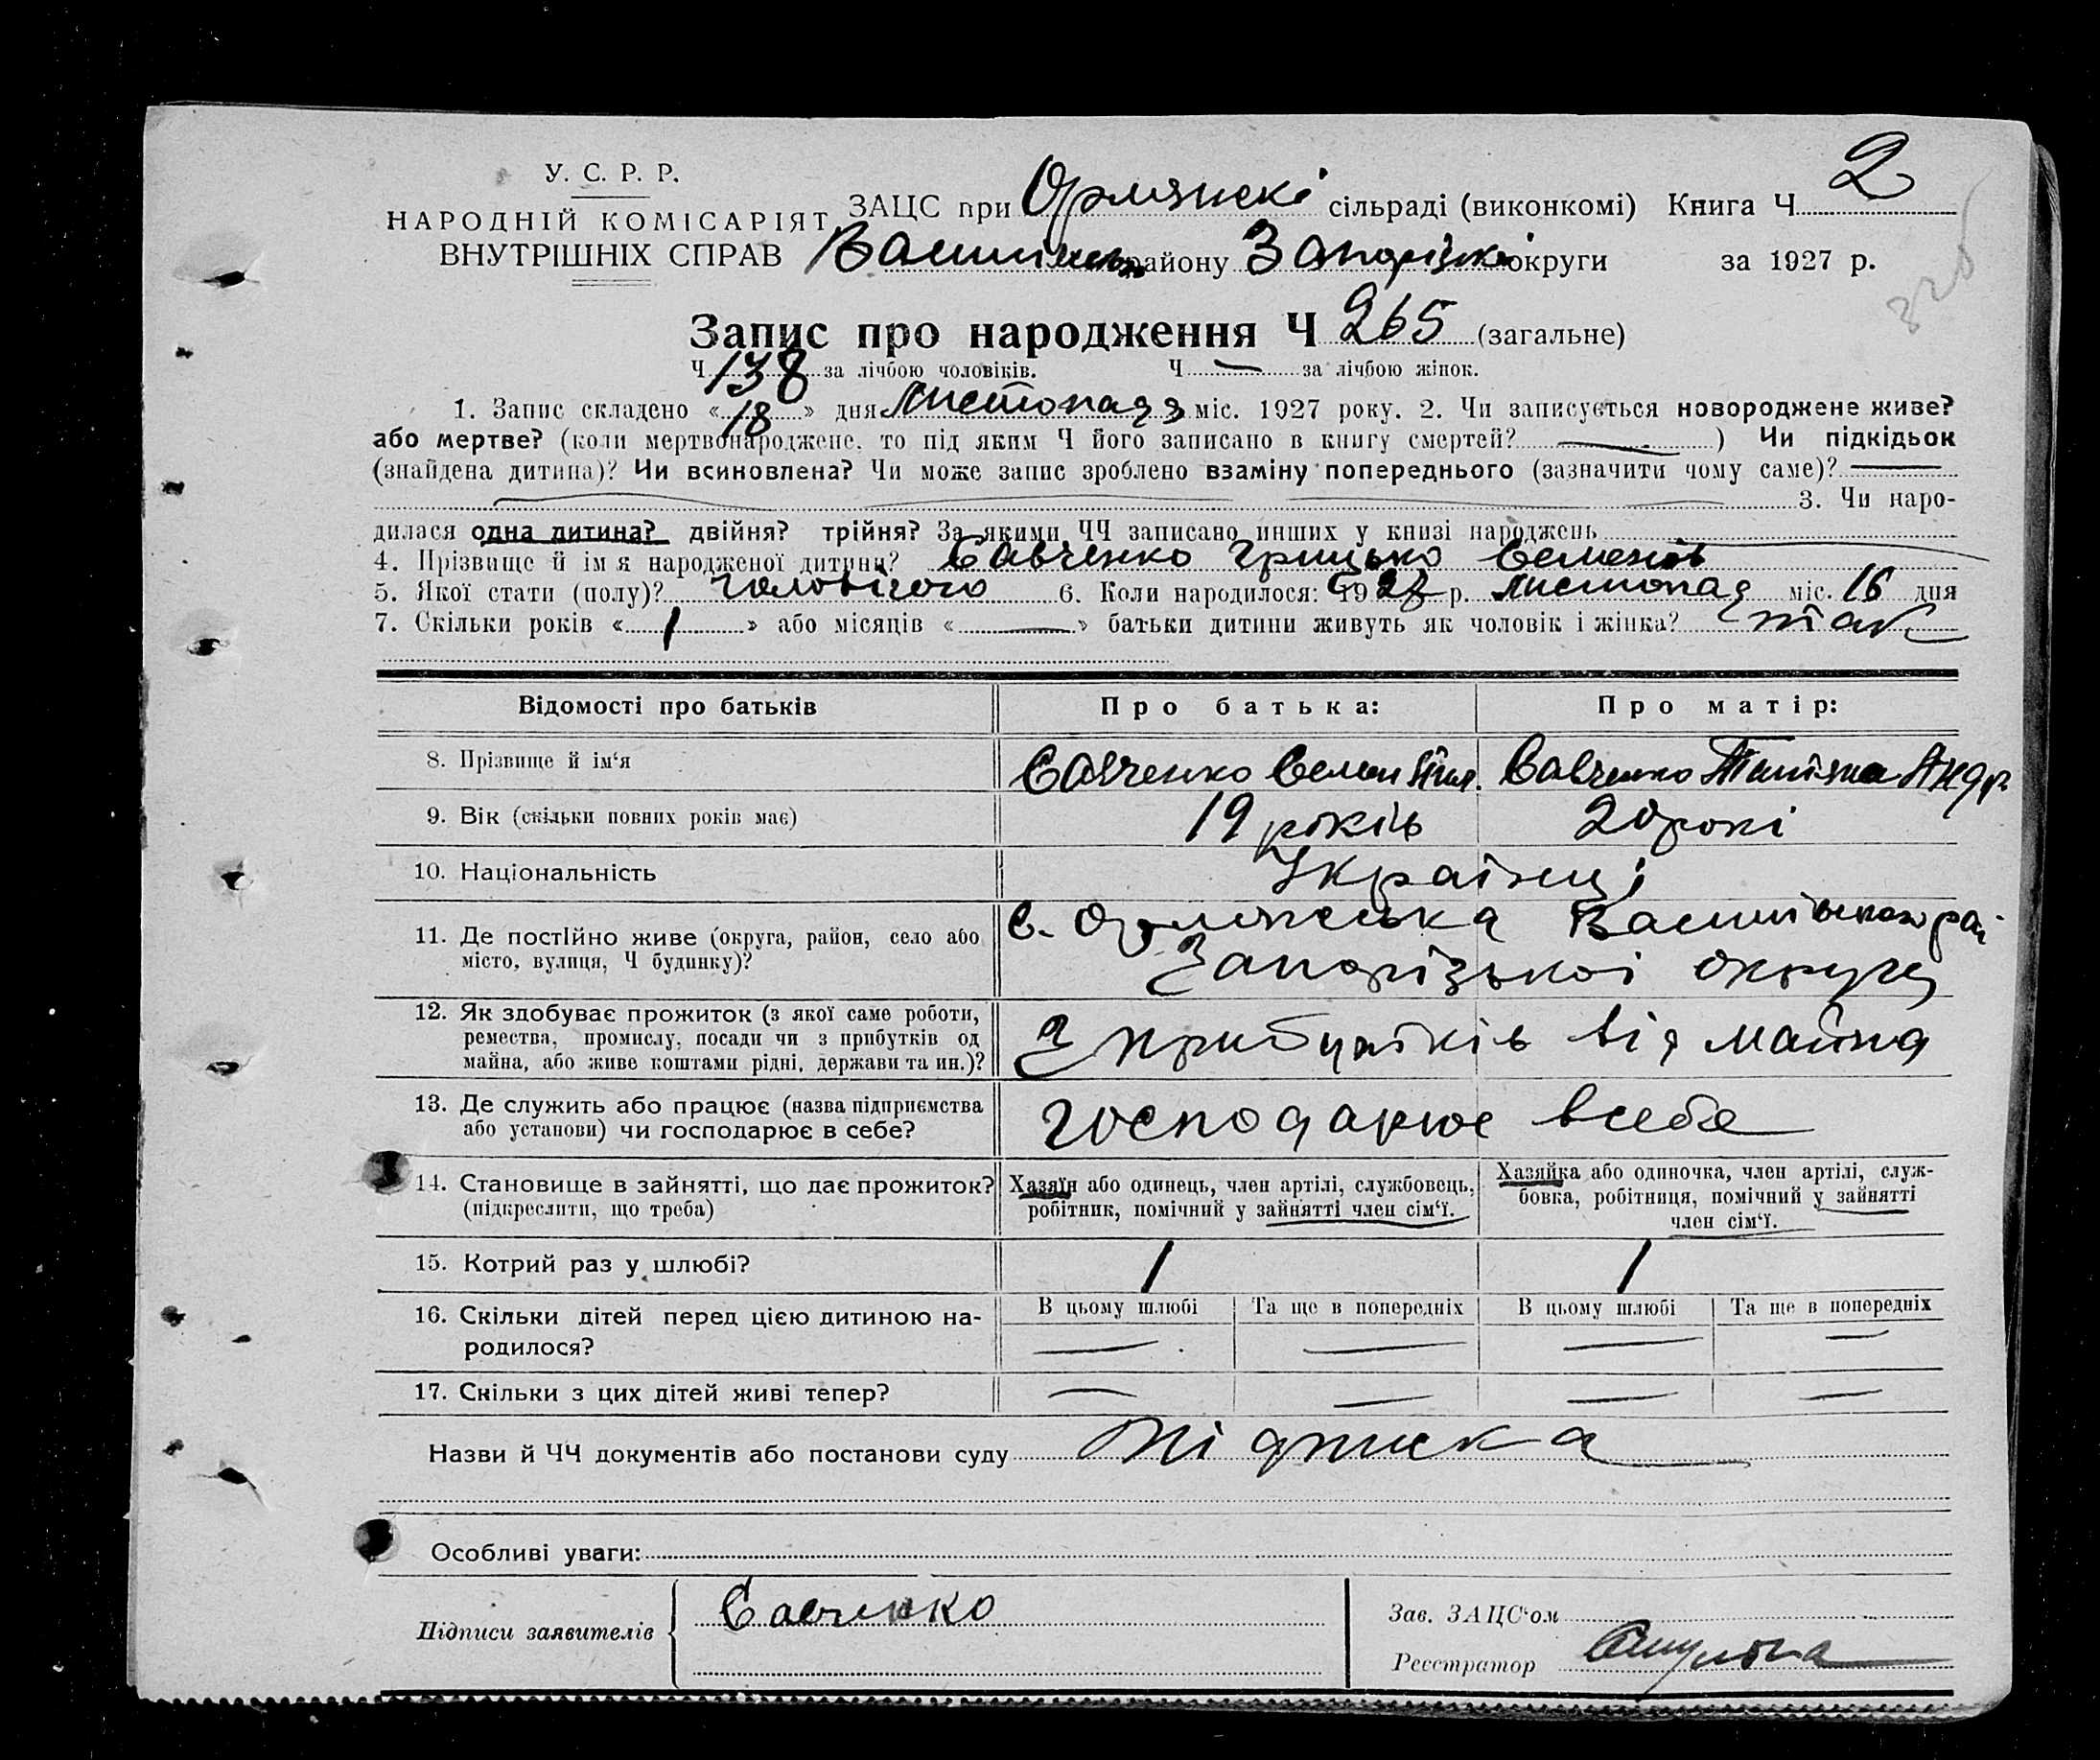 У. С. Р. Р.
НАРОДНІЙ КОМІСАРІЯТ
ВНУТРІШНІХ СПРАВ
ЗАЦС при Орлянскі сільраді (виконкомі) Книга Ч 2
району Запорізької округи за 1927 р.
Запис про народження Ч 265 (загальне)
Ч 138 за лічбою чоловіків. Ч — за лічбою жінок.
1. Запис складено «18» дня листопада міс. 1927 року. 2. Чи записується новороджене живе?
або мертве? (коли мертвонароджене, то під яким Ч його записано в книгу смертей? — ) Чи підкідьок
(знайдена дитина)? Чи всиновлена? Чи може запис зроблено взаміну попереднього (зазначити чому саме)? —
3. Чи наро-
дилася одна дитина? двійня? трійня? За якими ЧЧ записано инших у книзі народжень
4. Прізвище й ім'я народженої дитини? Савченко Грицько Семенів
5. Якої стати (полу)? чоловічого 6. Коли народилося: 1927 р. листопад міс. 16 дня
7. Скільки років «1» або місяців «—» батьки дитини живуть як чоловік і жінка? так
Відомості про батьків Про батька: Про матір:
8. Прізвище й ім‘я Савченко Семен Савченко Татіяна Андр
9. Вік (скільки повних років має) 19 років 20 рокі
10. Національність Українці
11. Де постійно живе (округа, район, село або с. Орлянська Василівського рай
місто, вулиця, Ч будинку)? Запорізької округи
12. Як здобуває прожиток (з якої саме роботи,
ремества, промислу, посади чи з прибутків од З прибутків від майна
майна, або живе коштами рідні, держави та ин.)?
13. Де служить або працює (назва підприємства
або установи) чи господарює в себе? господарює в себе
14. Становище в зайнятті, що дає прожиток? Хазяїн або одинець, член артілі, службовець, Хазяйка або одиночка, член артілі, служ-
(підкреслити, що треба) робітник, помічний у зайнятті член сім‘ї. бовка, робітниця, помічний у зайнятті
член сім‘ї.
15. Котрий раз у шлюбі? 1 1
16. Скільки дітей перед цією дитиною на- В цьому шлюбі Та ще в попередніх В цьому шлюбі Та ще в попередніх
родилося? — — — —
17. Скільки з цих дітей живі тепер? — — — —
Назви й ЧЧ документів або постанови суду підписка
Особливі уваги:
Підписи заявителів Савченко
Зав. ЗАЦС‘ом
Реєстратор